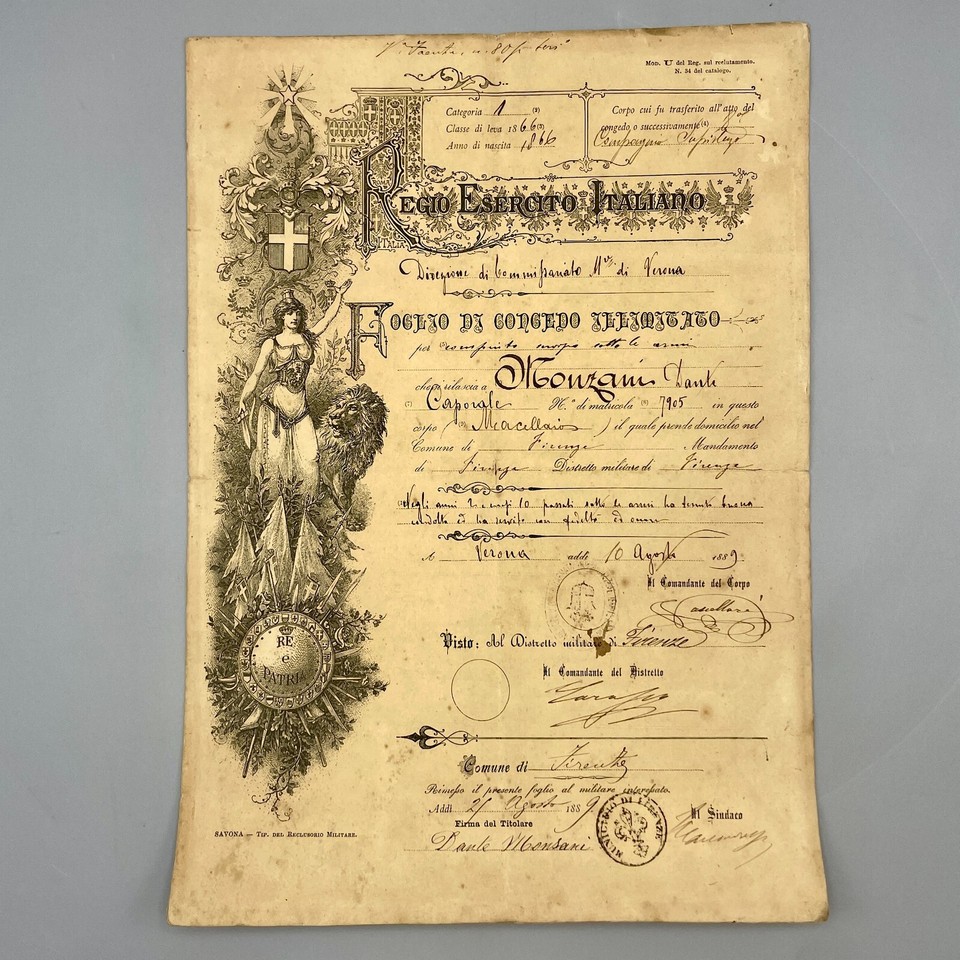 Mod. U del Reg. sul reclutamento.
N. 54 del catalogo.
Categoria 1 (2)
Classe di leva 1866 (3)
Anno di nascita 1866
Corpo cui fu trasferito all'atto del
congedo o successivamente (4)
REGIO ESERCITO ITALIANO
ITALIA
Direzione di Commissariato Mre di Verona
FOGLIO DI CONGEDO ILLIMITATO
per compiuto sotto le armi
che si rilascia a Monzani Dante
Caporale N.º di matricola 7905 in questo
corpo ( Macellaio ) il quale prende domicilio nel
Comune di Firenze Mandamento
di Firenze Distretto militare di Firenze
Negli anni 2 e mesi 10 passati sotto le armi ha tenuto buona
condotta ed ha servito con fedeltà ed onore
A Verona addì 10 Agosto 1889
Il Comandante del Corpo
Visto: Al Distretto militare di Firenze
Il Comandante del Distretto
RE
e
PATRIA
Comune di Firenze
Rimesso il presente foglio al militare interessato.
Addì Agosto 1889
Il Sindaco
Firma del Titolare
Dante Monsani
MUNICIPIO DI FIRENZE
SAVONA — TIP. DEL RECLUSORIO MILITARE.